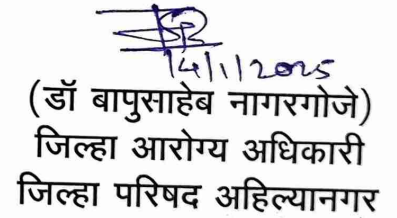 14/1/2025
(डॉ बापुसाहेब नागरगोजे)
जिल्हा आरोग्य अधिकारी
जिल्हा परिषद अहिल्यानगर